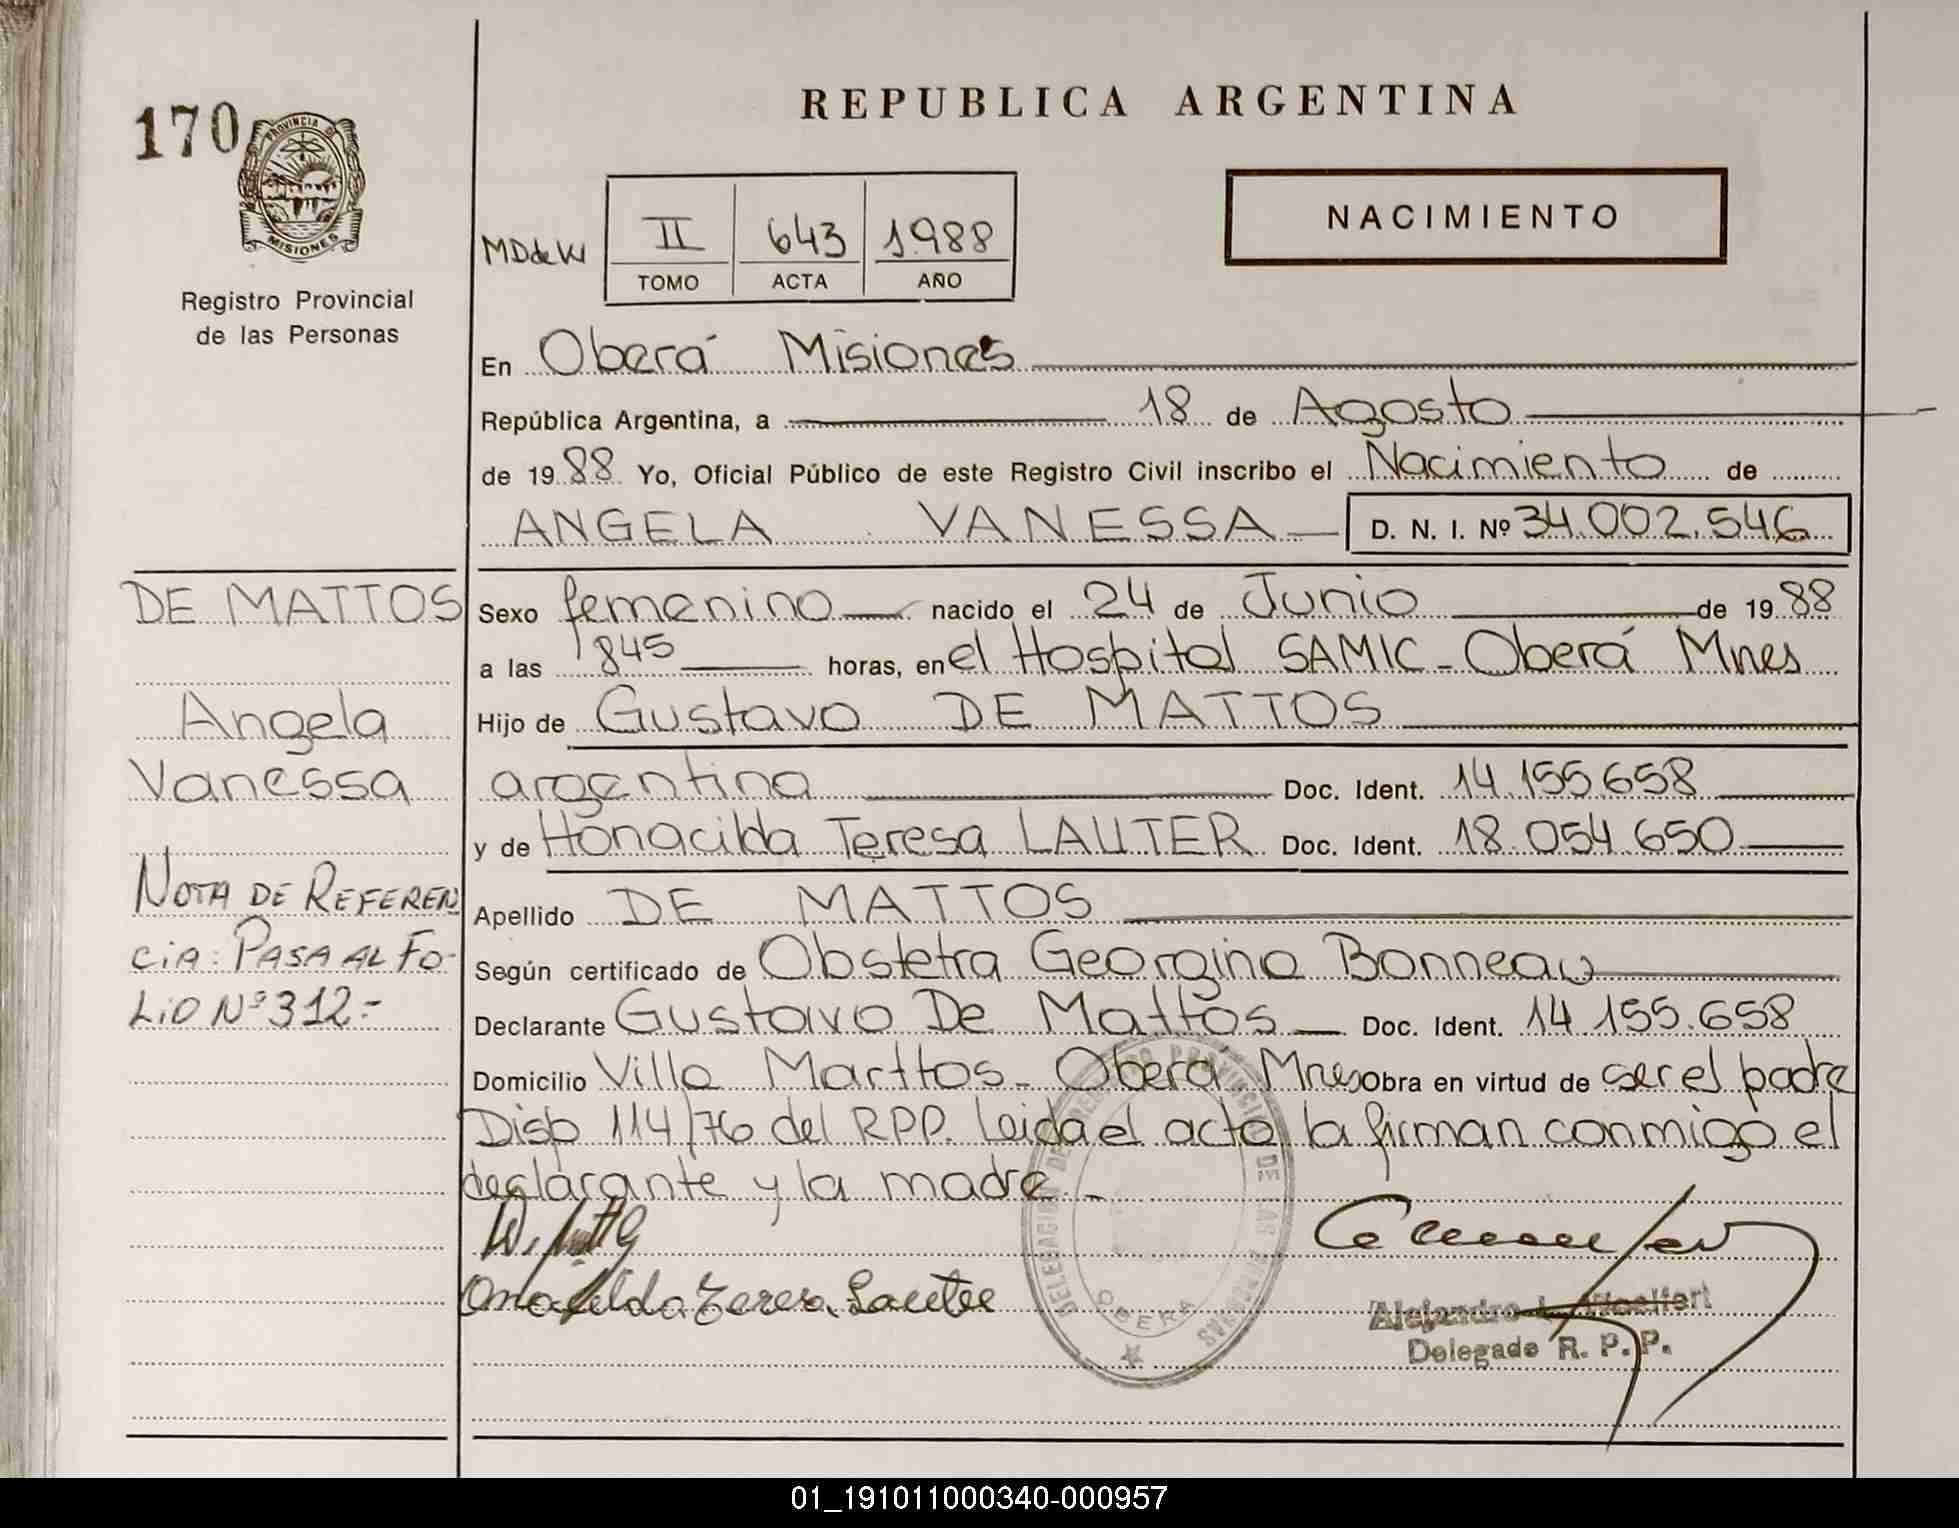 170
PROVINCIA DE
MISIONES
Registro Provincial
de las Personas
REPUBLICA ARGENTINA
NACIMIENTO
MDdeW II 643 1.988
TOMO ACTA AÑO
En Oberá Misiones
República Argentina, a 18 de Agosto
de 19 88 Yo, Oficial Público de este Registro Civil inscribo el Nacimiento de
ANGELA VANESSA D. N. I. Nº 34.002.546
DE MATTOS
Angela
Vanessa
NOTA DE REFEREN
CIA: PASA AL FO-
LIO Nº 312.-
Sexo femenino nacido el 24 de Junio de 19 88
a las 1845 horas, en el Hospital SAMIC - Oberá Mnes
Hijo de Gustavo DE MATTOS
argentina Doc. Ident. 14.155.658
y de Honacilda Teresa LAUTER Doc. Ident. 18.054.650
Apellido DE MATTOS
Según certificado de Obstetra Georgina Bonneau
Declarante Gustavo De Mattos Doc. Ident. 14.155.658
Domicilio Villa Marttos - Oberá Mnes Obra en virtud de ser el padre
Disp 114/76 del R.P.P. Leida el acta, la firman conmigo el
declarante y la madre -
Teresa Lauter
DELEGACION DE REGISTRO PROVINCIAL DE LAS PERSONAS
OBERA
Alejandro
Delegado R. P. P.
01_191011000340-000957